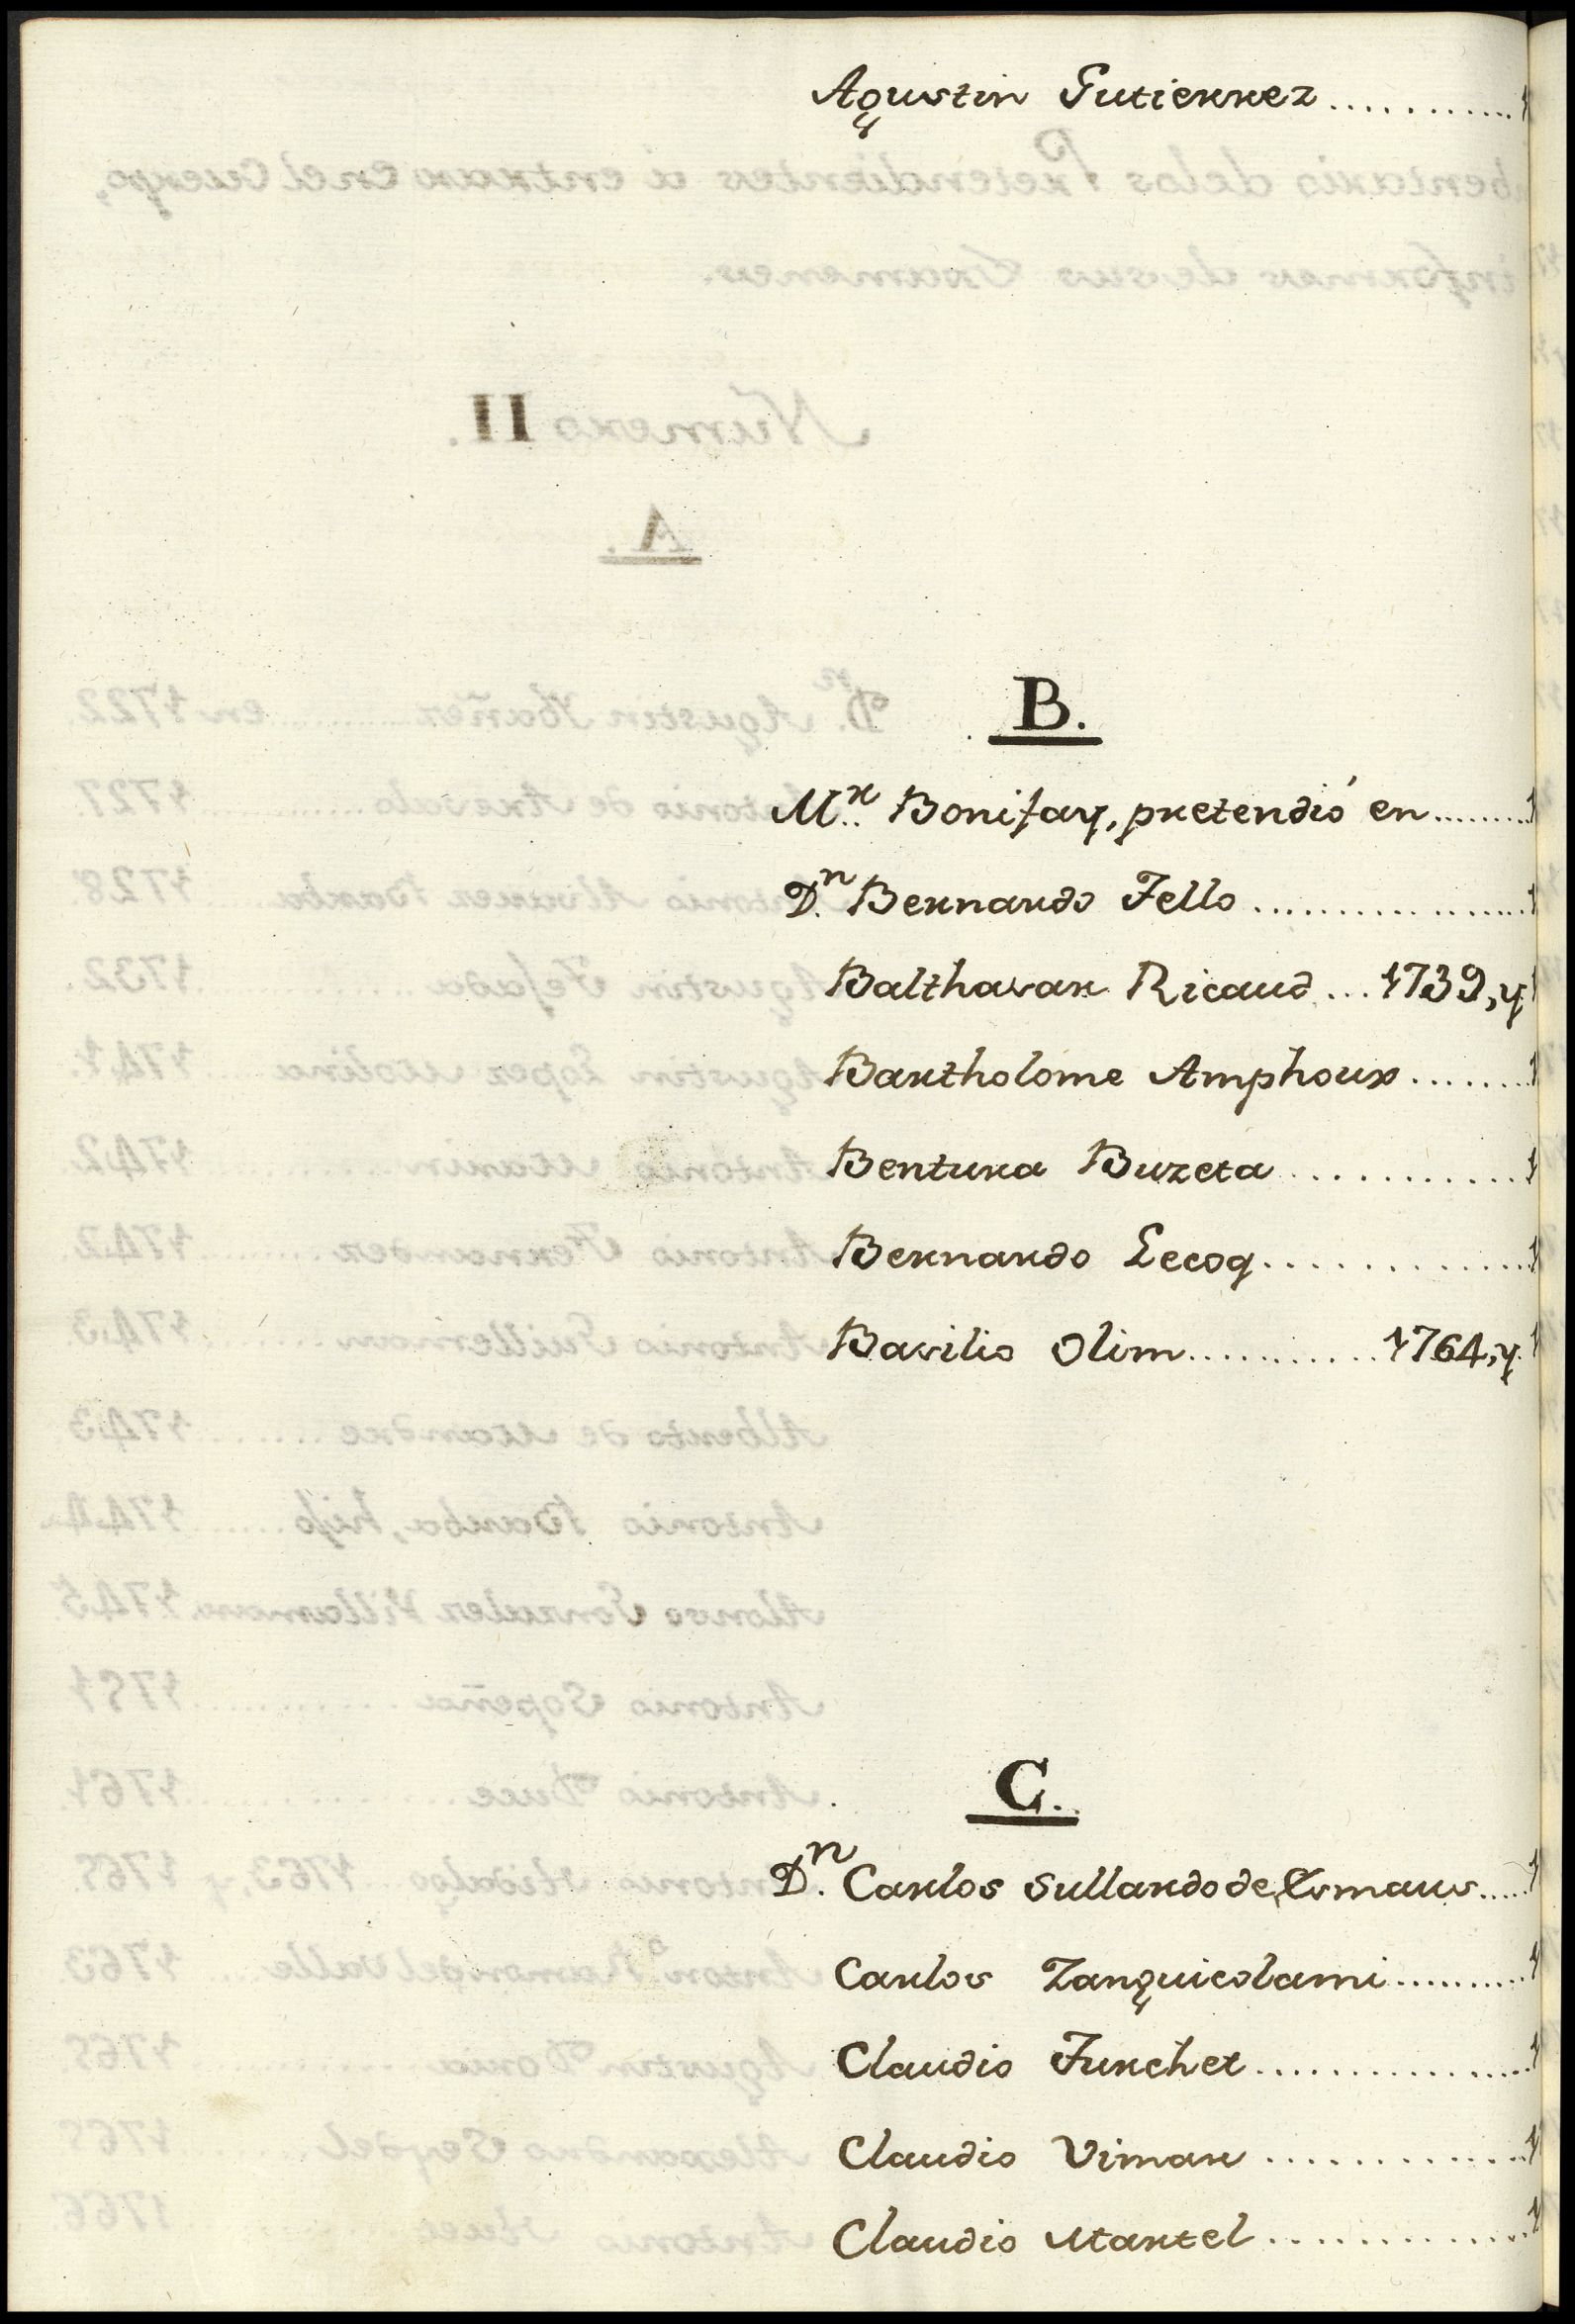 Agustin Gutierrez............1
B.
M.r Bonifay, pretendió en.........1
D.n Bernardo Fello...................1
Balthasar Ricaud...1739, y 1
Bartholome Amphoux........1
Bentura Buzeta.............1
Bernardo Lecoq..............1
Basilio Olim............1764, y 1
C.
D.n Carlos Sullardo de Esmaus.....1
Carlos Zanguicolami..........1
Claudio Furchet................1
Claudio Vimar..............1
Claudio Martel..............1